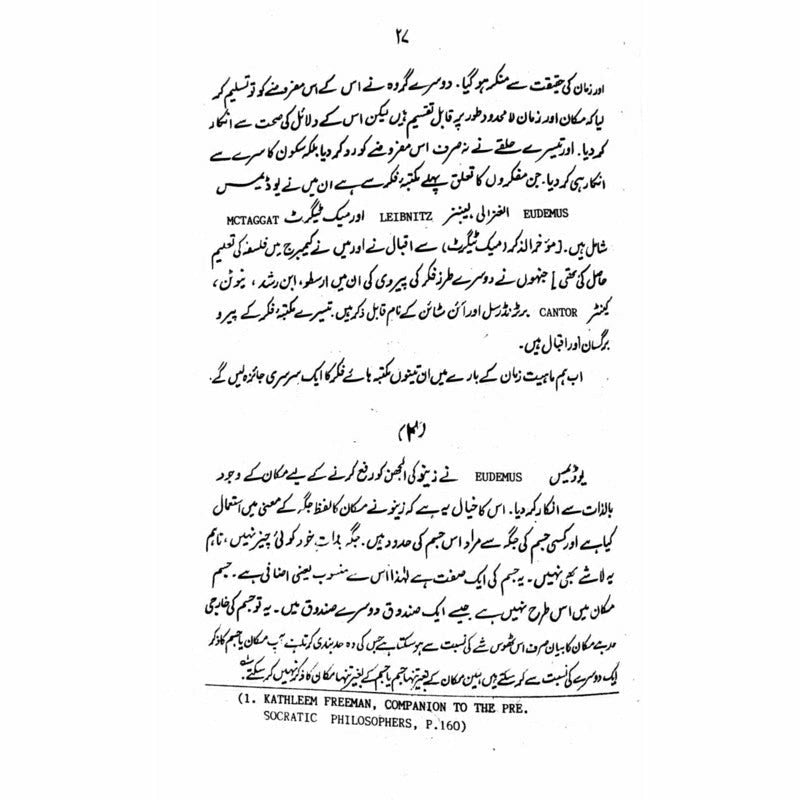 ۲۷
اور زمان کی حقیقت سے منکر ہو گیا۔ دوسرے گروہ نے اس کے اس مفروضے کو تو تسلیم کر
لیا کہ مکان اور زمان لا محدود طور پر قابل تقسیم ہیں لیکن اس کے دلائل کی صحت سے انکار
کر دیا۔ اور تیسرے حلقے نے نہ صرف اس مفروضے کو رد کر دیا بلکہ سکون کا سرے سے
انکار ہی کر دیا۔ جن مفکروں کا تعلق پہلے مکتبۂ فکر سے ہے ان میں نے یوڈیمس
EUDEMUS الغزالی، لیبنتز LEIBNITZ اور میک ٹیگرٹ MCTAGGAT
شامل ہیں۔ [مؤخر الذکر (میک ٹیگرٹ) سے اقبال نے اور میں نے کیمبرج میں فلسفہ کی تعلیم
حاصل کی تھی] جنہوں نے دوسرے طرز فکر کی پیروی کی ان میں ارسطو، ابن رشد، نیوٹن،
کینٹر CANTOR برٹرنڈرسل اور آئن شٹائن کے نام قابل ذکر ہیں۔ تیسرے مکتبۂ فکر کے پیرو
برگساں اور اقبال ہیں۔
اب ہم ماہیت زمان کے بارے میں ان تینوں مکتبہ ہائے فکر کا ایک سرسری جائزہ لیں گے۔
(۳)
یوڈیمس EUDEMUS نے زینو کی الجھن کو رفع کرنے کے لیے مکان کے وجود
بالذات سے انکار کر دیا۔ اس کا خیال یہ ہے کہ زینو نے مکان کا لفظ جگہ کے معنی میں استعمال
کیا ہے اور کسی جسم کی جگہ سے مراد اس جسم کی حدود ہیں۔ جگہ بذات خود کوئی چیز نہیں، تاہم
یہ لاشے بھی نہیں۔ یہ جسم کی ایک صفت ہے لہٰذا اس سے منسوب یعنی اضافی ہے۔ جسم
مکان میں اس طرح نہیں ہے جیسے ایک صندوق دوسرے صندوق میں۔ یہ تو جسم کی خارجی
حد ہے مکان کا بیان صرف اس ٹھوس شے کی نسبت سے ہو سکتا ہے جس کی وہ حد بندی کرتا ہے آپ مکان یا جسم کا ذکر
ایک دوسرے کی نسبت سے کر سکتے ہیں لیکن مکان کے بغیر تنہا جسم یا جسم کے بغیر تنہا مکان کا ذکر نہیں کر سکتے
(1. KATHLEEM FREEMAN, COMPANION TO THE PRE.
SOCRATIC PHILOSOPHERS, P.160)